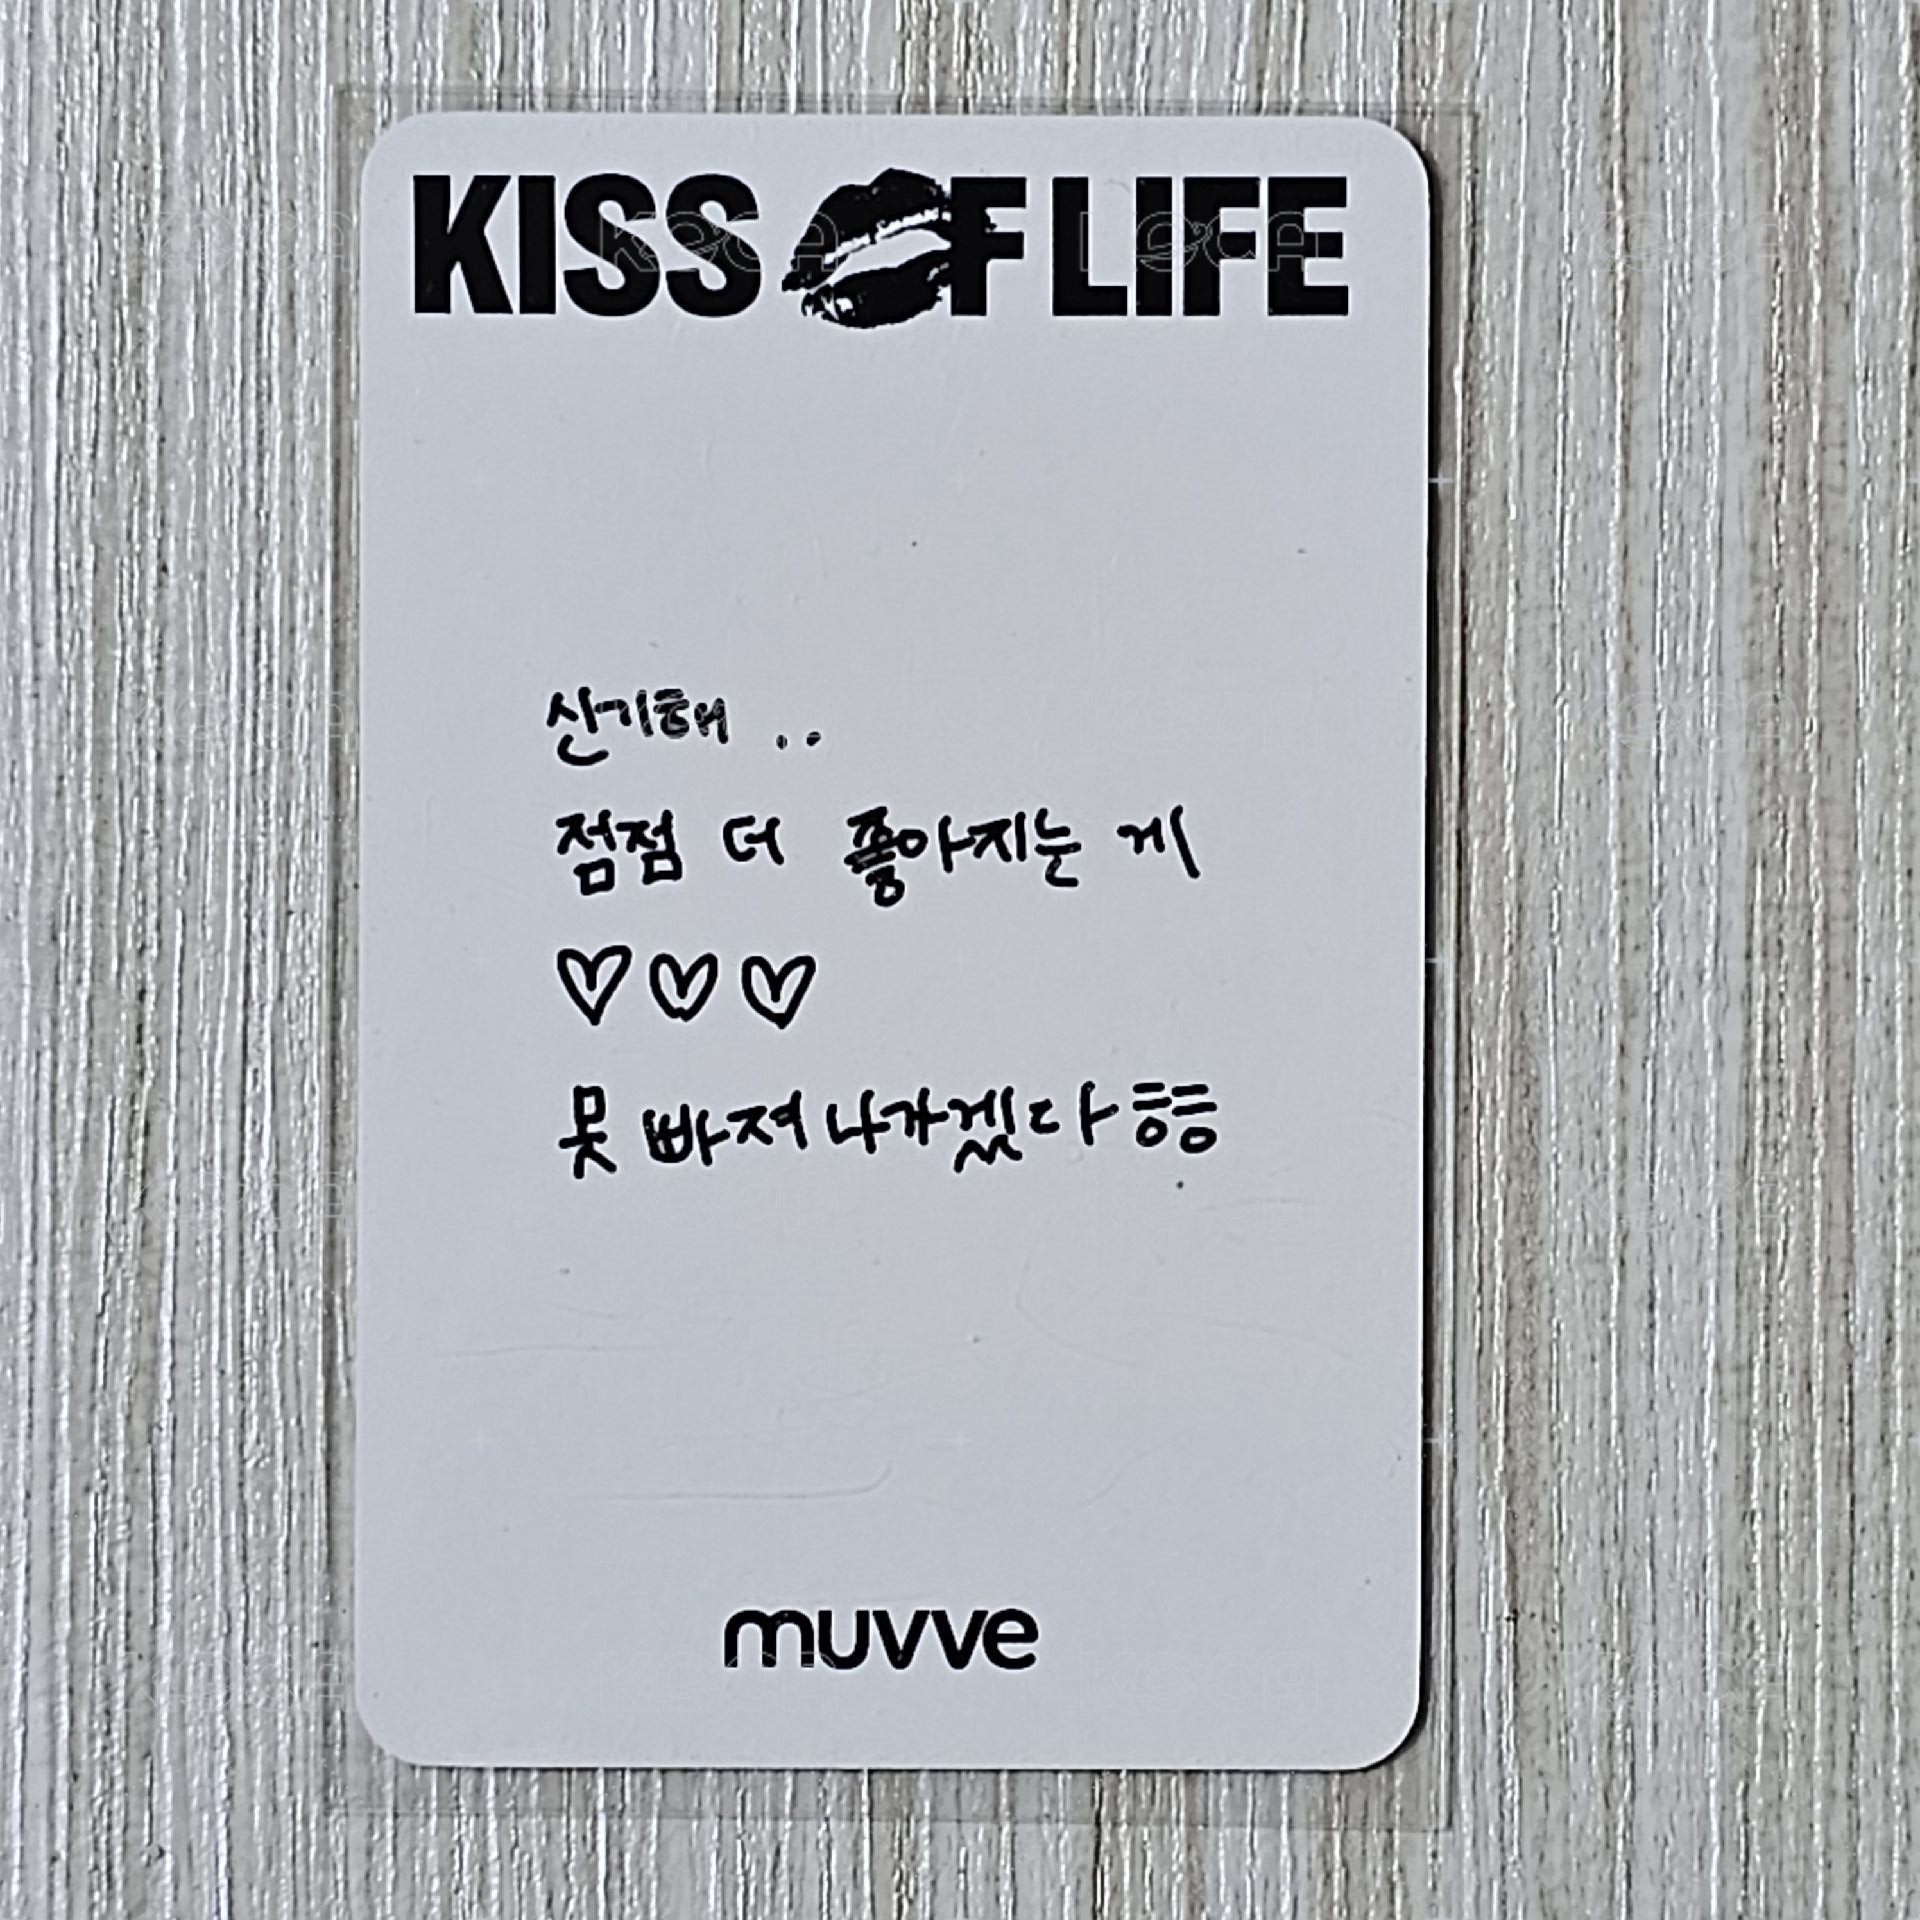 KISS OF LIFE
신기해 ..
점점 더 좋아지는 게
♡♡♡
못 빠져나가겠다 ㅎㅎ
muvve